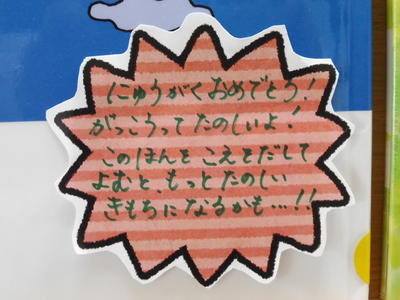 にゅうがくおめでとう!
がっこうってたのしいよ!
このほんをこえをだして
よむと、もっとたのしい
きもちになるかも…!!